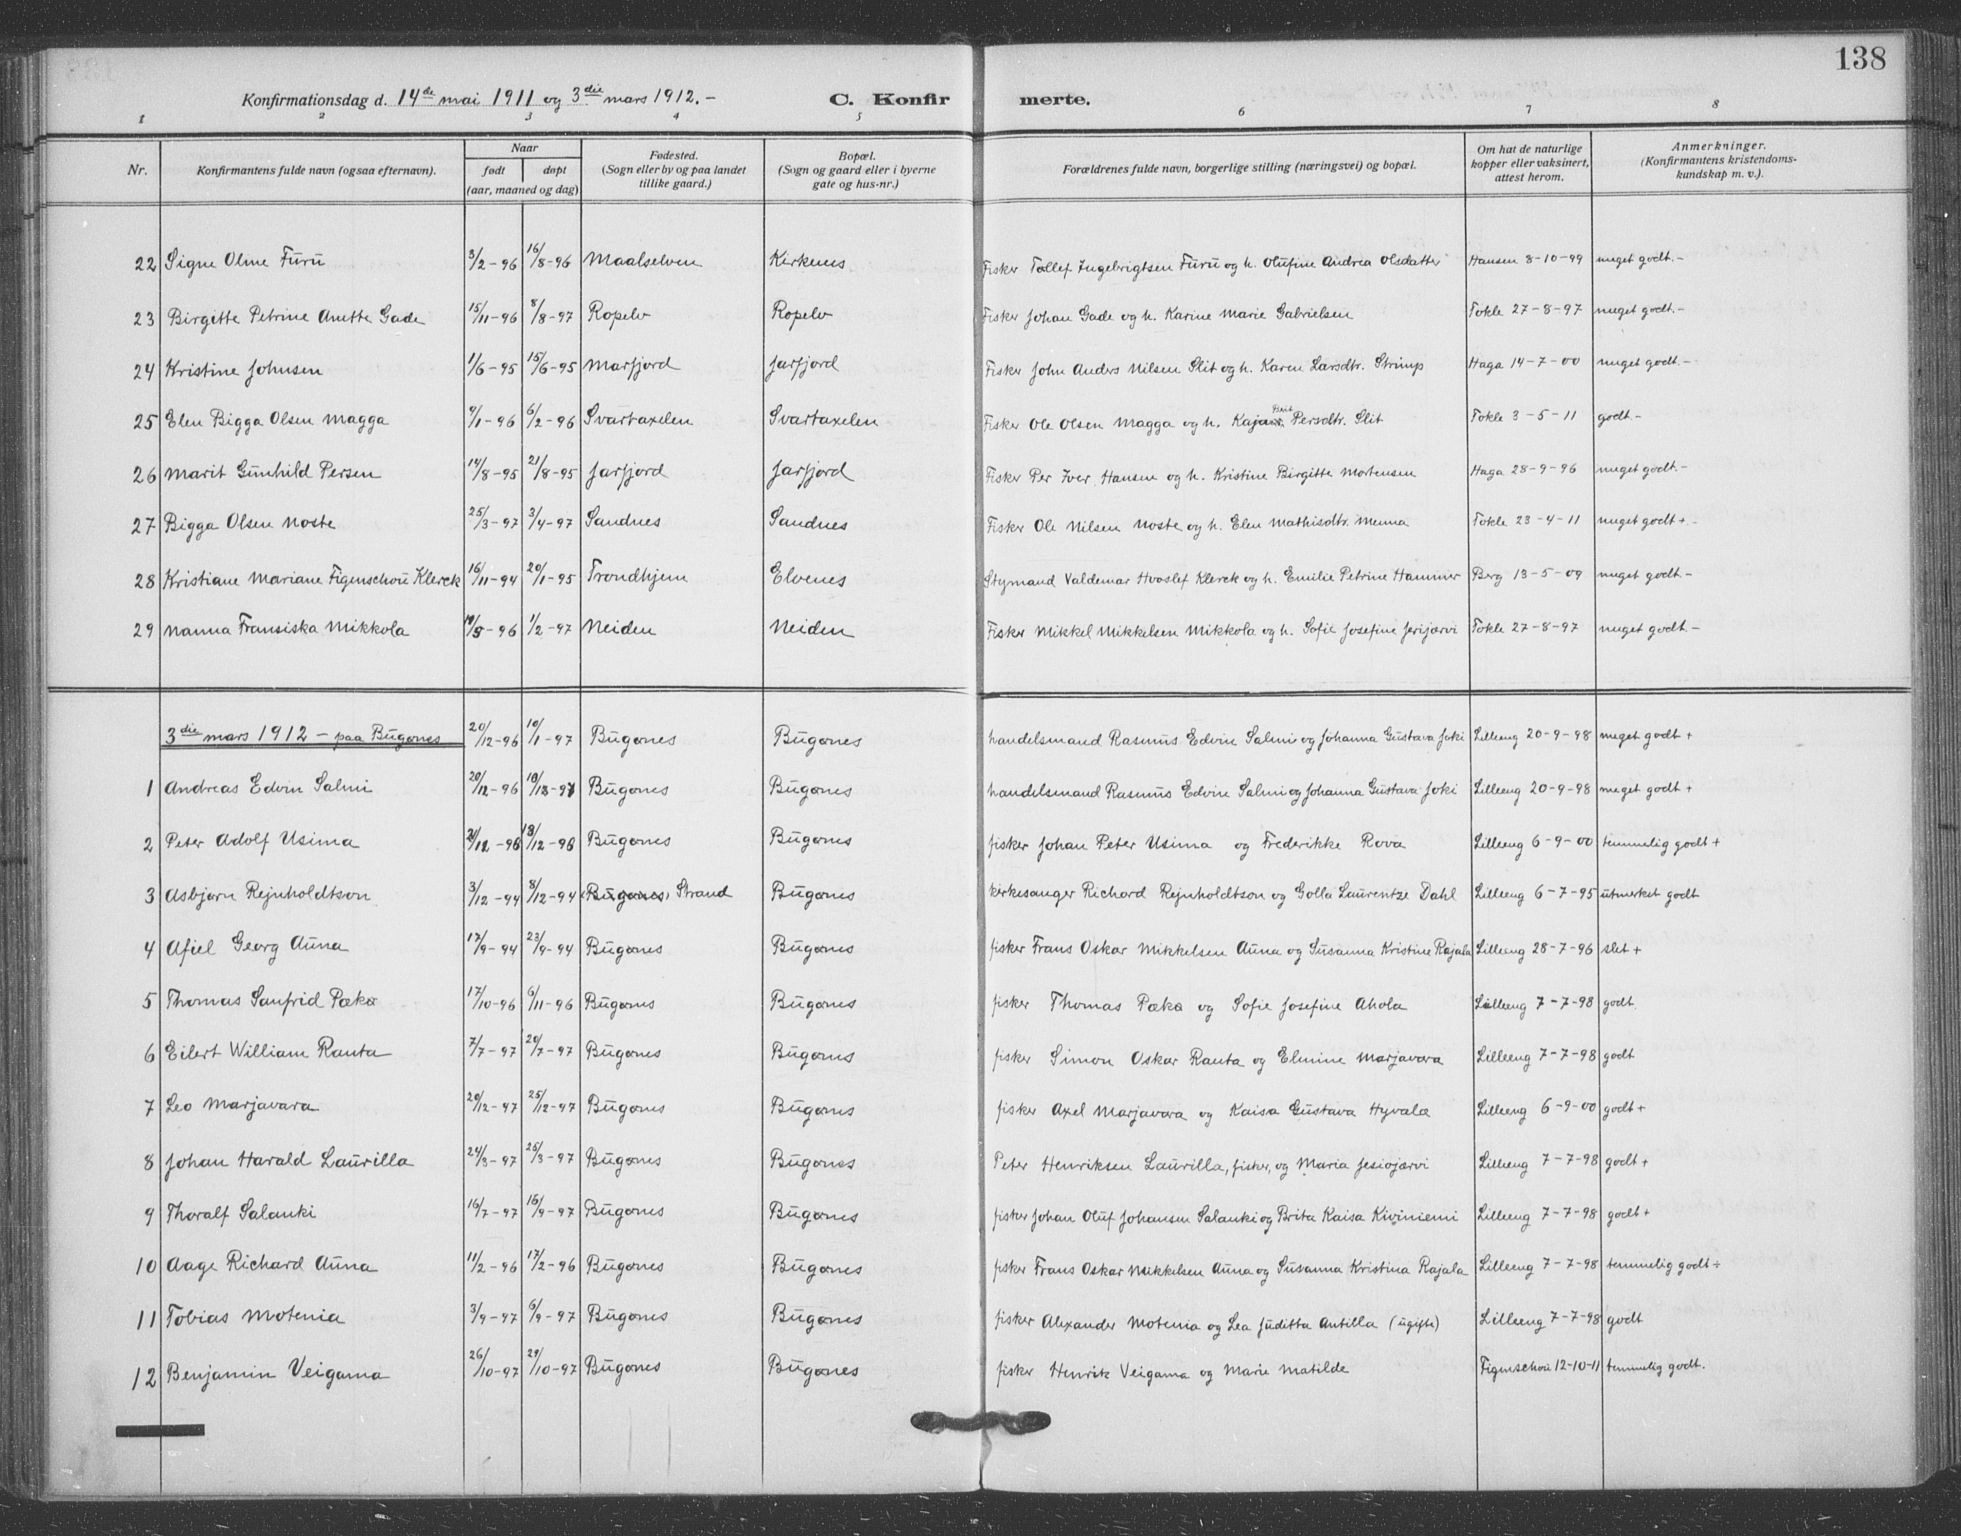 138
Konfirmationsdag d. 14de mai 1911 og 3die mars 1912. - C. Konfirmerte.
1 2 3 4 5 6 7 8
Nr. Konfirmantens fulde navn (ogsaa efternavn). Naar født døpt (aar, maaned og dag) Fødested. (Sogn eller by og paa landet tillike gaard.) Bopæl. (Sogn og gaard eller i byerne gate og hus-nr.) Forældrenes fulde navn, borgerlige stilling (næringsvei) og bopæl. Om hat de naturlige kopper eller vaksinert, attest herom. Anmerkninger. (Konfirmantens kristendoms-kundskap m. v.).
22 Signe Oline Furu 3/2-96 16/8-96 Maalselven Kirkenes Fisker Tollef Ingebrigtsen Furu og h. Olufine Andrea Olsdatter Hansen 8-10-99 meget godt.-
23 Birgitte Petrine Anette Gade 15/11-96 8/8-97 Ropelv Ropelv Fisker Johan Gade og h. Karine Marie Gabrielsen Tokle 27-8-97 meget godt.-
24 Kristine Johnsen 1/6-95 15/6-95 Marfjord Jarfjord Fisker John Anders Nilsen Slit og h. Karen Larsdtr. Strimp Haga 14-7-00 meget godt.-
25 Elen Bigga Olsen Magga 9/1-96 6/2-96 Svartaxelen Svartaxelen Fisker Ole Olsen Magga og h. Persdtr. Slit Tokle 3-5-11 godt.-
26 Marit Gunhild Persen 14/8-95 21/8-95 Jarfjord Jarfjord Fisker Per Iver Hansen og h. Kristine Birgitte Mortensen Haga 28-9-96 meget godt.-
27 Bigga Olsen Noste 25/3-97 3/4-97 Sandnes Sandnes Fisker Ole Nilsen Noste og h. Elen Mathisdtr. Menna Tokle 23-4-11 meget godt+.-
28 Kristiane Mariane Figenschou Klerck 16/11-94 20/1-95 Trondhjem Elvenes Stymand Valdemar Hvoslef Klerck og h. Emilie Petrine Hammer Berg 13-5-09 meget godt.-
29 Nanna Fransiska Mikkola /5-96 1/2-97 Neiden Neiden Fisker Mikkel Mikkelsen Mikkola og h. Sofie Josefine Jerijærvi Tokle 27-8-97 meget godt.-
3die mars 1912 - paa Bugønes 20/12-96 10/1-97 Bugønes Bugønes handelsmand Rasmus Edvin Salmi og Johanna Gustava Joki Lilleeng 20-9-98 meget godt +
1 Andreas Edvin Salmi 20/12-96 Bugønes Bugønes handelsmand Rasmus Edvin Salmi og Johanna Gustava Joki Lilleeng 20-9-98 meget godt +
2 Peter Adolf Usima /12-96 /12-96 Bugønes Bugønes fisker Johan Peter Usima og Frederikke Rova Lilleeng 6-9-00 temmelig godt +
3 Asbjørn Rejnholdtson 3/12-94 8/12-94 (Bugønes) Strand Bugønes kirkesanger Richard Rejnholdtson og Golla Laurentze Dahl Lilleeng 6-7-95 utmerket godt
4 Afiel Georg Auna 17/9-94 23/9-94 Bugønes Bugønes fisker Frans Oskar Mikkelsen Auna og Susanna Kristine Rajala Lilleeng 28-7-96 slet +
5 Thomas Sanfrid Pækø 17/10-96 6/11-96 Bugønes Bugønes fisker Thomas Pækø og Sofie Josefine Ahola Lilleeng 7-7-98 godt
6 Eilert William Ranta 7/7-97 20/7-97 Bugønes Bugønes fisker Simon Oskar Ranta og Elmine Marjavara Lilleeng 7-7-98 godt
7 Leo Marjavara 20/12-97 25/12-97 Bugønes Bugønes fisker Axel Marjavara og Kaisa Gustava Hyvalæ Lilleeng 6-9-00 godt +
8 Johan Harald Laurilla 24/3-97 25/3-97 Bugønes Bugønes Peter Henriksen Laurilla, fisker, og Maria Jesiojærvi Lilleeng 7-7-98 godt +
9 Thoralf Salanki 16/7-97 15/9-97 Bugønes Bugønes fisker Johan Oluf Johansen Salanki og Brita Kaisa Kiviniemi Lilleeng 7-7-98 godt +
10 Aage Richard Auna 11/2-96 17/2-96 Bugønes Bugønes fisker Frans Oskar Mikkelsen Auna og Susanna Kristina Rajala Lilleeng 7-7-98 temmelig godt ÷
11 Tobias Motenia 3/9-97 6/9-97 Bugønes Bugønes fisker Alexander Motenia og Lea Juditta Antilla (ugifte) Lilleeng 7-7-98 godt
12 Benjamin Veigama 26/10-97 29/10-97 Bugønes Bugønes fisker Henrik Veigama og Marie Matilde Figenschou 12-10-11 temmelig godt.